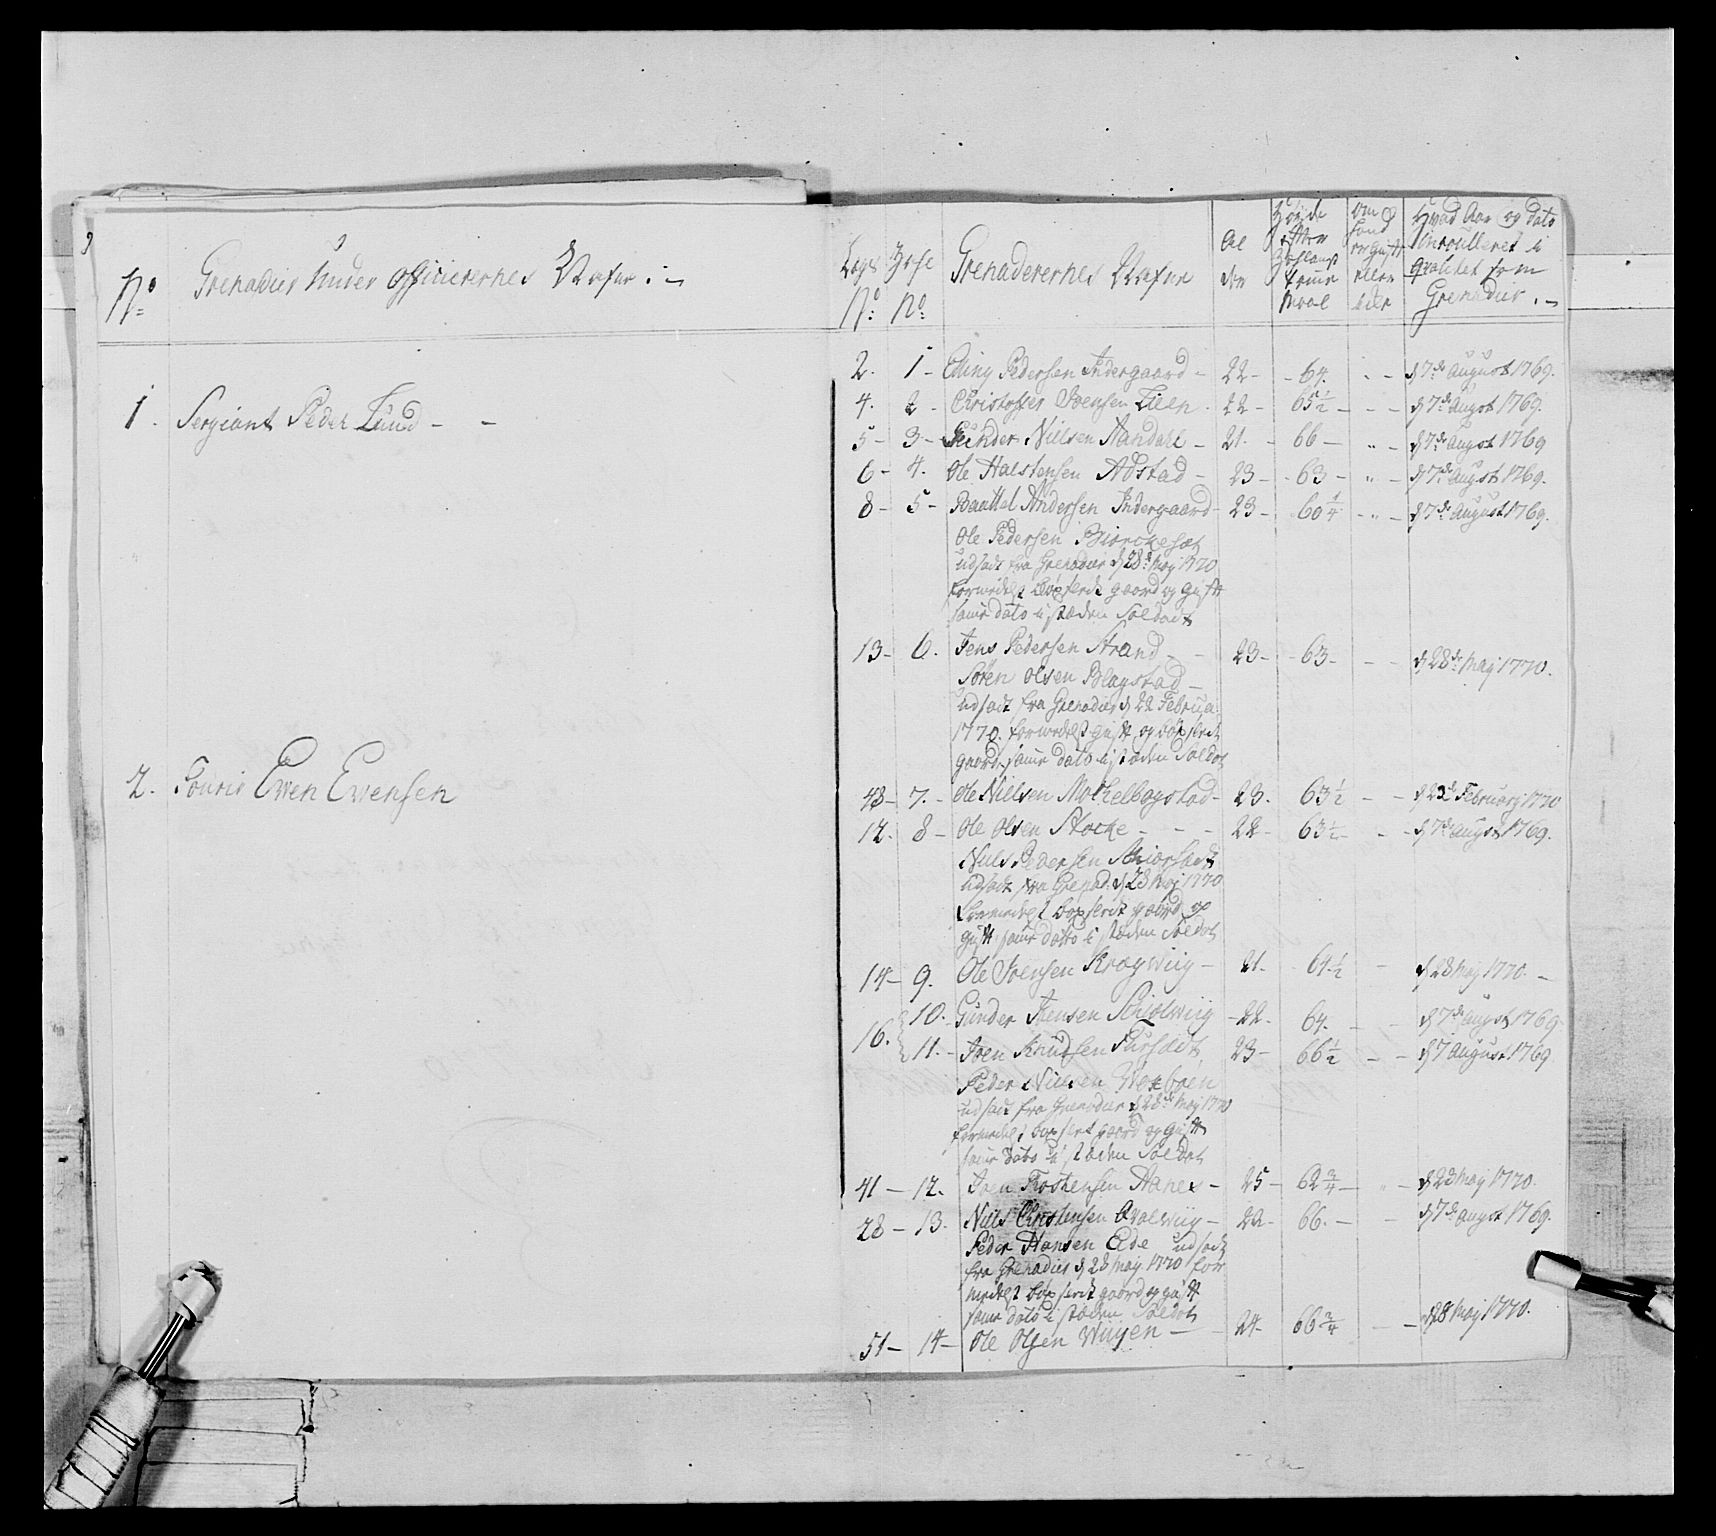 No Grenadier Under Officierernes Nafne :~
1. Sergiant Peder Lund - -
2. Fourir Even Evensen
Legs No: No: Grenaderernes Nafne
Al der
Høyde efter
Maal
Om hand er gift eller eier
Hvad Aar og dato
enroulleret i
qvalitet som
Grenadier .~
2. 1 - Elling Pedersen Indergaard - 22 - - 64. . - d 7de August 1769.
4. 2 - Christoffer Joensen Lien . 22 - 65 1/2 - - - d 7de Augst 1769.
5 - 3 - Gunder Nielsen Aandahl - 21. - 66 - " - d 7de Augst 1769
6 - 4. Ole Halstensen Adstad - 23 - 63 - " - d 7de Augst 1769.
8 - 5 - Baattel Andersen Indergaard - 23 - 60 1/4 - " - d 7de August 1769.
Ole Pedersen Biorckesæt
udsadt fra Grenadier d 28de Maj 1770
formedelst boxserdt gaard og gift
same dato i stæden Soldadt
13 - 6. Jens Pedersen Strand - - 23 - - 63 - - - d 28de Maj 1770.
Søren Olsen Blagstad -
udsadt fra Grenadier d 22 Februa:
1770. formedelst gift og boxslerdt
gaard. same dato i stæden Soldat
48 - 7. - Ole Nielsen Mochelbogstad - 23. 63 1/2 - - d 23de February 1770
12. 8 - Ole Olsen Stocke - - - 22 - 63 1/2 - - - d 7de Augst 1769.
Niels Pedersen
udsadt fra Grenad: d 28 Maj 1770
formedelst boxserdt gaard og
gift same datto i stæden Soldat
14 - 9. Ole Joensen Kragwiig - 21. 61 1/2 - d 28 Maj 1770. -
16. 10. Gunder Joensen Schiolwiig - 22 - 64. - - d 7de Augst 1769.
11. - Joen Knudsen Fursædt 23 - 66 1/2 - - d 7 August 1769
Peder Nielsen
udsadt fra Grenadier d 28de Maj 1770
formedelst boxslert gaard og gift
same dato i stæden Soldat
41 - 12. Joen Tostensen Hanes - 25 - 62 3/4 - " - d 28 Maj 1770.
28 - 13. Niels Christensen Qvalwiig - 22 - 66. - - d 7de Augst 1769.
Peder Hansen Eide udsadt
fra Grenadier d 28 Maj 1770 for
medelst boxserdt gaard og gift
same dato i stæden Soldat
51 - 14 - Ole Olsen Wiigen - - 24 - 66 3/4 - - d 28 Maj 1770.